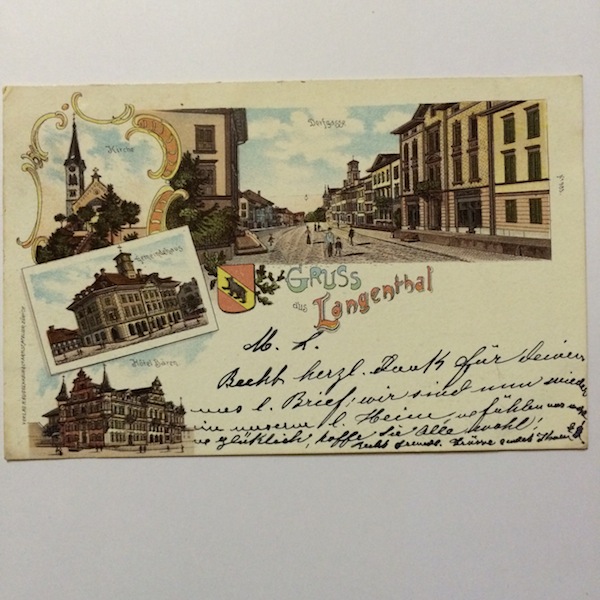 Kirche
Dorfgasse
Gemeindehaus
Hôtel Bären
GRUSS
aus Langenthal
M. L.
Recht herzl. Dank für deinen
l. Brief, wir sind nun wieder
in unserem l. Heim u. fühlen uns
glücklich, hoffe Sie Alle wohl!
Recht freundl. Grüsse sendet Ihnen